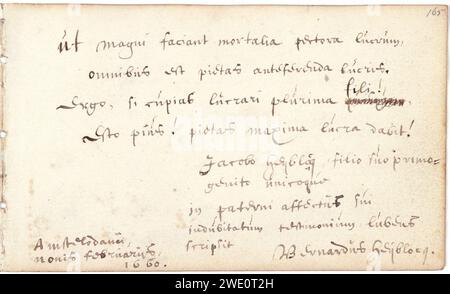 165
Ut magni faciant mortalia pectora lucrum,
omnibus est pietas anteferenda lucris.
Ergo, si cupias lucrari plurima fili!
Esto pius! pietas maxima lucra dabit!
Jacobo Heyblocq, filio suo primo-
genito unicoque
in paterni affectus sui
indubitatum testimonium lubens
scripsit
Bernardus Heyblocq.
Amstelodami,
nonis februariis,
1660.
alamy
Image ID: 2WE0T2H
www.alamy.com